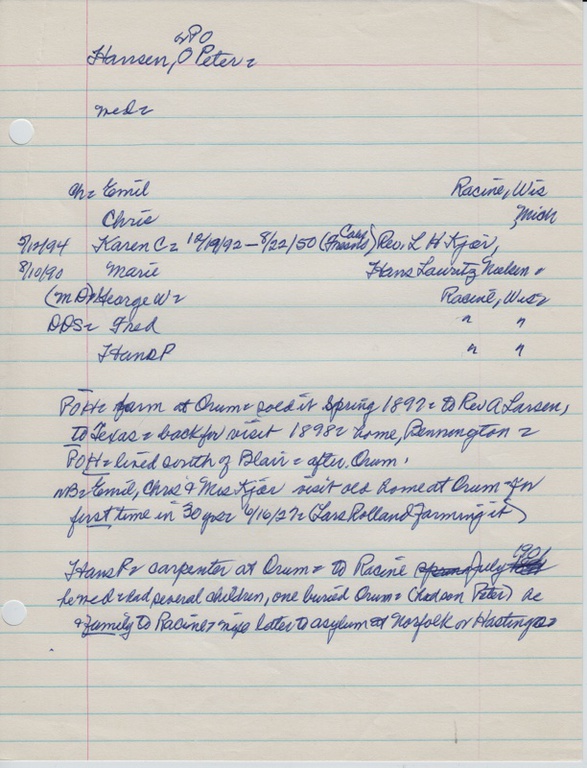 or PO
Hansen, O Peter =
med =
ch = Emil Racine, Wis
Chris Mich
5/12/94 Karen C = 12/19/92 - 8/22/50 (Calif Fresno) Rev. L H Kjær,
8/10/90 Marie Hans Lauritz Nielsen =
(MD) George W = Racine, Wis =
DDS = Fred " "
Hans P " "
POH = farm at Orum = sold it Spring 1897 = to Rev A Larsen,
to Texas = back for visit 1898 = home, Bennington =
POH = lived south of Blair = after Orum.
NB = Emil, Chris & Mrs Kjær visit old home at Orum - for
first time in 30 yrs 6/16/27 = (Lars Rolland farming it)
Hans P = carpenter at Orum = to Racine July 1901
he med = had several children, one buried Orum = (had son Peter) he
& family to Racine = wife later to asylum at Norfolk or Hastings =